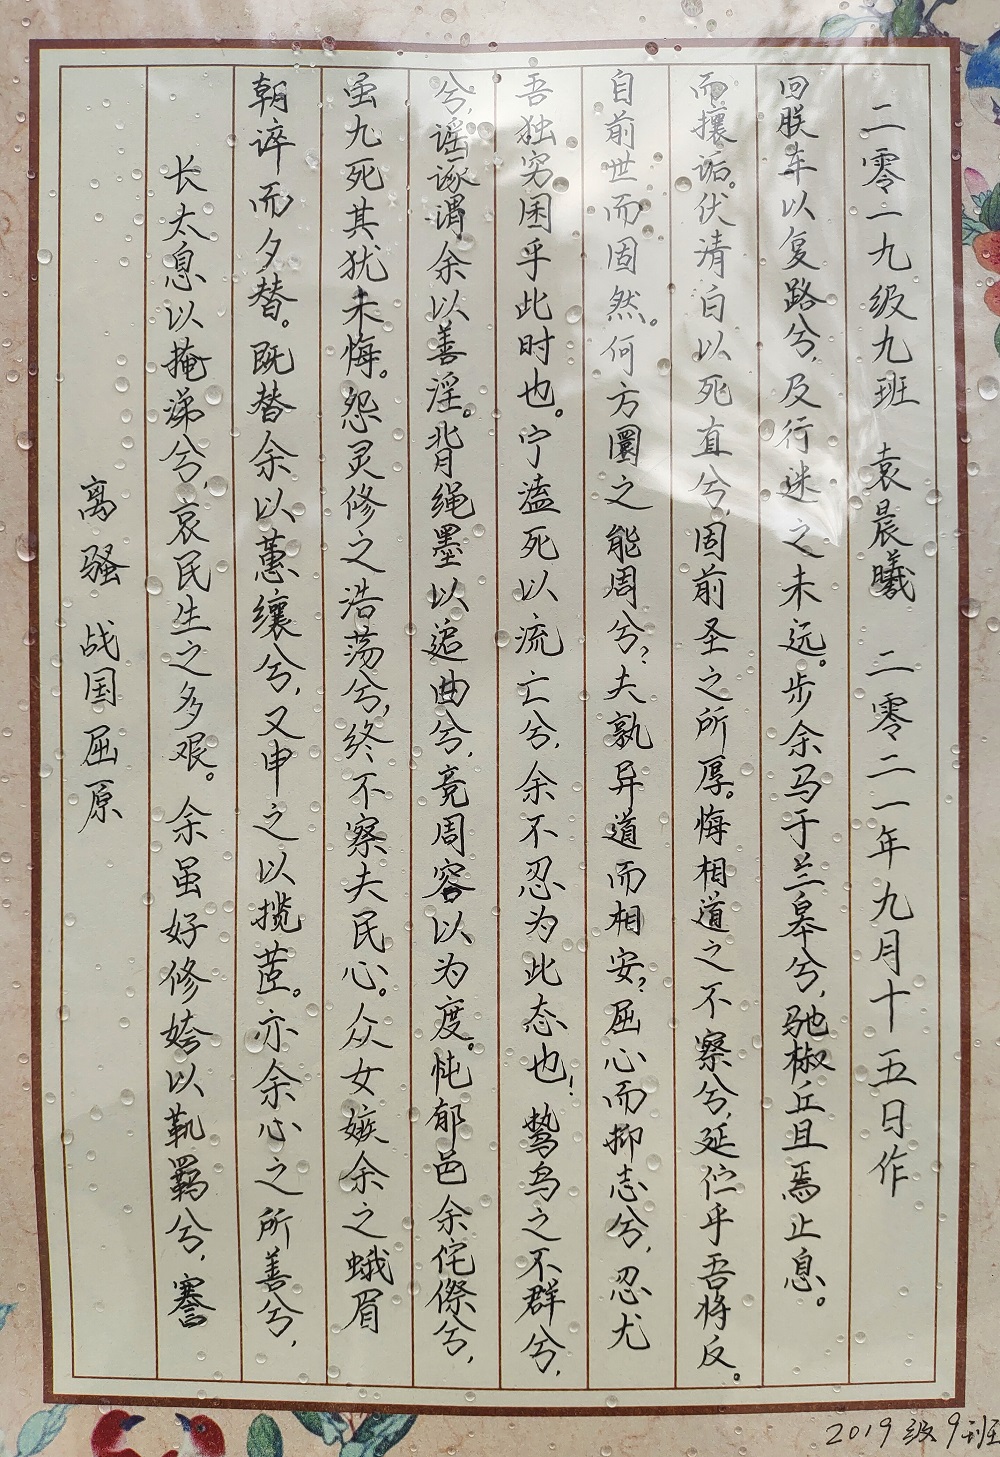 离骚 战国屈原
长太息以掩涕兮，哀民生之多艰。余虽好修姱以靰羁兮，謇
朝谇而夕替。既替余以蕙纕兮，又申之以揽茝。亦余心之所善兮，
虽九死其犹未悔。怨灵修之浩荡兮，终不察夫民心。众女嫉余之蛾眉
兮，谣诼谓余以善淫。背绳墨以追曲兮，竞周容以为度。忳郁邑余侘傺兮，
吾独穷困乎此时也。宁溘死以流亡兮，余不忍为此态也！鸷鸟之不群兮，
自前世而固然。何方圜之能周兮？夫孰异道而相安？屈心而抑志兮，忍尤
而攘诟。伏清白以死直兮，固前圣之所厚。悔相道之不察兮，延伫乎吾将反。
回朕车以复路兮，及行迷之未远。步余马于兰皋兮，驰椒丘且焉止息。
二零一九级九班 袁晨曦 二零二一年九月十五日作
2019级9班